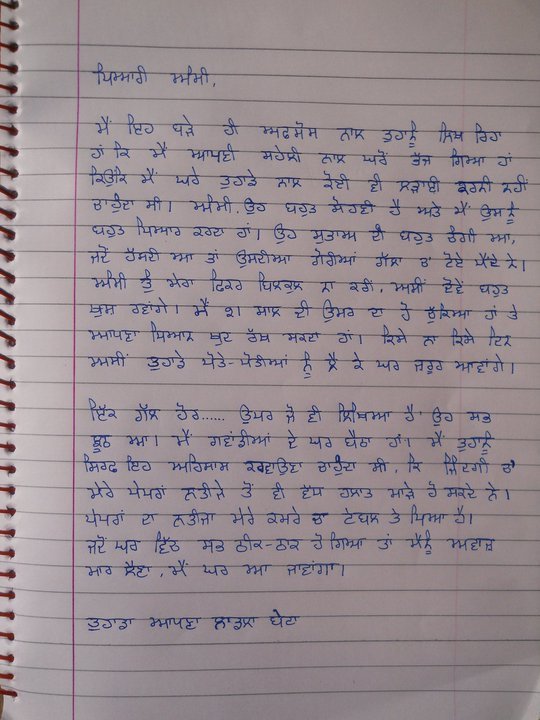 ਪਿਆਰੀ ਮੰਮੀ,
ਮੈਂ ਇਹ ਬੜੇ ਹੀ ਅਫਸੋਸ ਨਾਲ ਤੁਹਾਨੂੰ ਲਿਖ ਰਿਹਾ
ਹਾਂ ਕਿ ਮੈਂ ਆਪਣੀ ਸਹੇਲੀ ਨਾਲ ਘਰੋਂ ਭੱਜ ਗਿਆ ਹਾਂ
ਕਿਉਂਕਿ ਮੈਂ ਘਰੇ ਤੁਹਾਡੇ ਨਾਲ ਕੋਈ ਵੀ ਲੜਾਈ ਕਰਨੀ ਨਹੀਂ
ਚਾਹੁੰਦਾ ਸੀ। ਮੰਮੀ, ਉਹ ਬਹੁਤ ਸੋਹਣੀ ਹੈ ਅਤੇ ਮੈਂ ਉਸਨੂੰ
ਬਹੁਤ ਪਿਆਰ ਕਰਦਾ ਹਾਂ। ਉਹ ਸੁਭਾਅ ਦੀ ਬਹੁਤ ਚੰਗੀ ਆ,
ਜਦੋਂ ਹੱਸਦੀ ਆ ਤਾਂ ਉਸਦੀਆਂ ਗੋਰੀਆਂ ਗੱਲਾਂ ਚ ਟੋਏ ਪੈਂਦੇ ਨੇ।
ਮੰਮੀ ਤੂੰ ਮੇਰਾ ਫਿਕਰ ਬਿਲਕੁਲ ਨਾ ਕਰੀਂ, ਅਸੀਂ ਦੋਵੇਂ ਬਹੁਤ
ਖੁਸ਼ ਰਵਾਂਗੇ। ਮੈਂ 21 ਸਾਲ ਦੀ ਉਮਰ ਦਾ ਹੋ ਚੁੱਕਿਆ ਹਾਂ ਤੇ
ਆਪਣਾ ਧਿਆਨ ਖੁਦ ਰੱਖ ਸਕਦਾ ਹਾਂ। ਕਿਸੇ ਨਾ ਕਿਸੇ ਦਿਨ
ਅਸੀਂ ਤੁਹਾਡੇ ਪੋਤੇ-ਪੋਤੀਆਂ ਨੂੰ ਲੈ ਕੇ ਘਰ ਜ਼ਰੂਰ ਆਵਾਂਗੇ।
ਇੱਕ ਗੱਲ ਹੋਰ...... ਉਪਰ ਜੋ ਵੀ ਲਿਖਿਆ ਹੈ ਉਹ ਸਭ
ਝੂਠ ਆ। ਮੈਂ ਗਵਾਂਢੀਆਂ ਦੇ ਘਰ ਬੈਠਾ ਹਾਂ। ਮੈਂ ਤੁਹਾਨੂੰ
ਸਿਰਫ ਇਹ ਅਹਿਸਾਸ ਕਰਵਾਉਣਾ ਚਾਹੁੰਦਾ ਸੀ, ਕਿ ਜ਼ਿੰਦਗੀ ਚ'
ਮੇਰੇ ਪੇਪਰਾਂ ਨਤੀਜੇ ਤੋਂ ਵੀ ਵੱਧ ਹਲਾਤ ਮਾੜੇ ਹੋ ਸਕਦੇ ਨੇ।
ਪੇਪਰਾਂ ਦਾ ਨਤੀਜਾ ਮੇਰੇ ਕਮਰੇ ਚ ਟੇਬਲ ਤੇ ਪਿਆ ਹੈ।
ਜਦੋਂ ਘਰ ਵਿੱਚ ਸਭ ਠੀਕ-ਠਾਕ ਹੋ ਗਿਆ ਤਾਂ ਮੈਨੂੰ ਅਵਾਜ਼
ਮਾਰ ਲੈਣਾ, ਮੈਂ ਘਰ ਆ ਜਾਵਾਂਗਾ।
ਤੁਹਾਡਾ ਆਪਣਾ ਲਾਡਲਾ ਬੇਟਾ